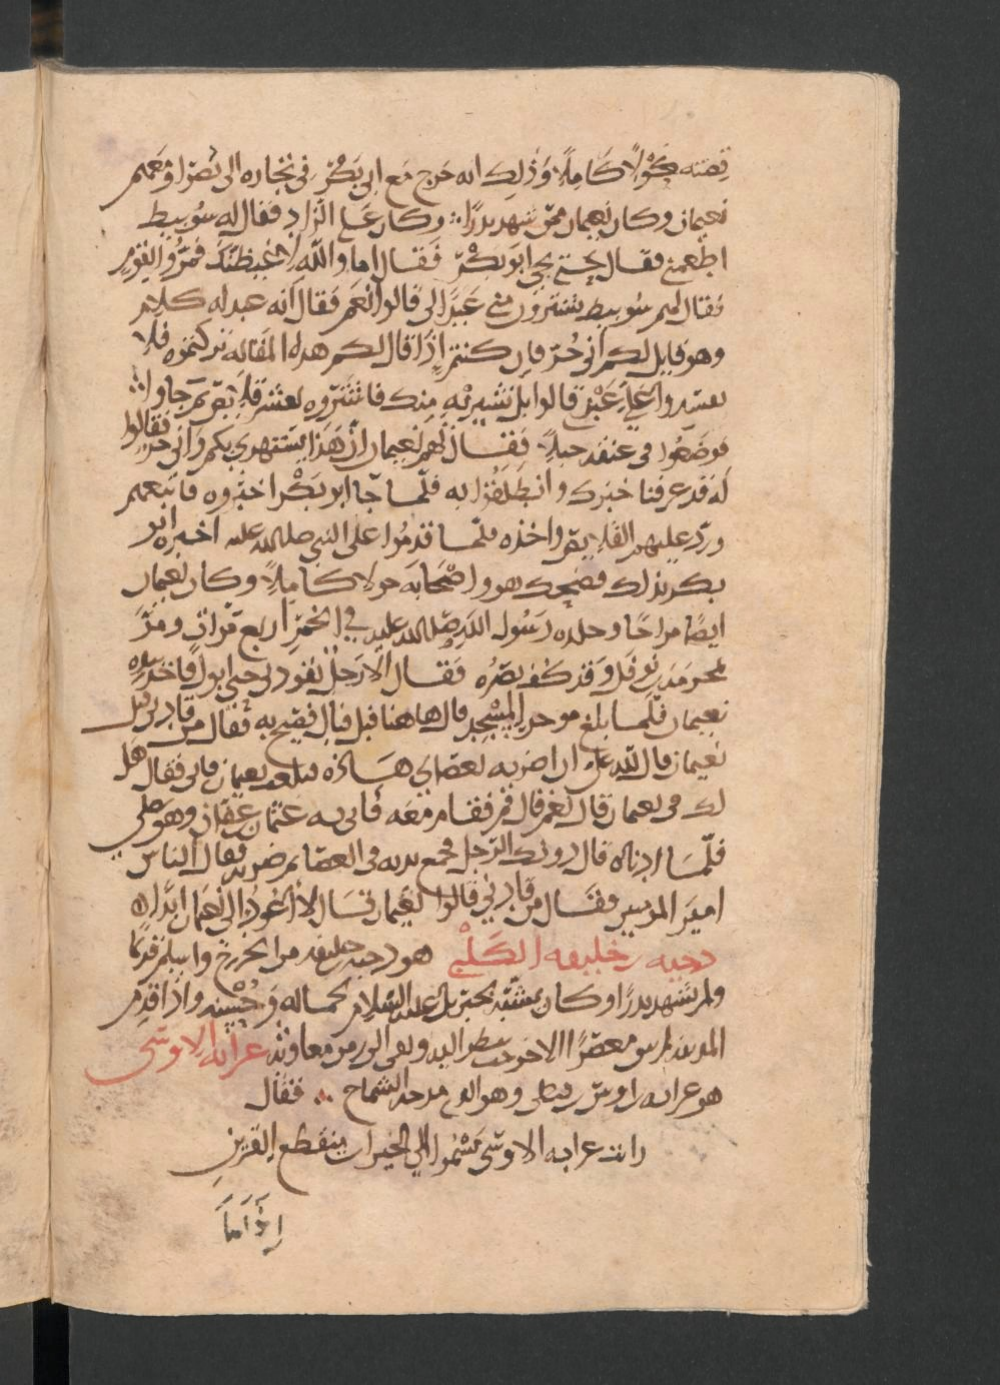 قصته حولا كاملا وذلك انه خرج مع ابي بكر في تجاره الى بصرا ومعهم
نعيمان وكان نعيمان ممن شهد بدرا وكان على الزاد فقال له سويبط
اطعمني فقال حتى يجي ابو بكر فقال اما والله لاغيظنك فمروا بقوم
فقال لهم سويبط تشترون مني عبدا لي قالوا نعم فقال انه عبد له كلام
وهو قايل لكم اني حر فان كنتم اذا قال لكم هذه المقاله تركتموه فلا
تفسدوا علي عبدي قالوا بل نشتريه منك فاشتروه بعشر قلايص ثم جاوا
فوضعوا في عنقه حبلا فقال لهم نعيمان ان هذا يستهزي بكم واني حر فقالوا
له قد عرفنا خبرك وانطلقوا به فلما جا ابو بكر اخبروه فاتبعهم
ورد عليهم القلايص واخذه فلما قدموا على النبي صلى الله عليه اخبره ابو
بكر بذلك فضحك هو واصحابه حولا كاملا وكان نعيمان
ايضا مزاحا وجلده رسول الله صلى الله عليه في الخمر اربع مرات ومر
بمخرمه بن نوفل وقد كف بصره فقال الا رجل يقودني حتى ابول فاخذ بيده
نعيمان فلما بلغ موخر المسجد قال هاهنا فبل فبال فصيح به فقال من قادني قيل
نعيمان قال لله علي ان اضربه بعصاي هذه فبلغ نعيمان فاتى فقال هل
لك في نعيمان قال نعم قال قم فقام معه فاتى به عثمان بن عفان وهو يصلي
فلما قال دونك الرجل فجمع يديه في العصا ثم ضربه فقال الناس
امير المومنين فقال من قادني قالوا نعيمان قال لا اعود الى نعيمان ابدا
دحيه بن خليفه الكلبي هو دحيه بن خليفه من الخزرج واسلم قديما
ولم يشهد بدرا وكان يشبه بجبريل عليه السلام لجماله وحسنه واذا قدم
المدينه لم يبق معصرا الا خرجت تنظر اليه وبقي الى زمن معاويه عرابه الاوسي
هو عرابه بن اوس بن قيظي وهو الذي مدحه الشماخ فقال
رايت عرابه الاوسي يسموا الى الخيرات منقطع القرين
اذا ما